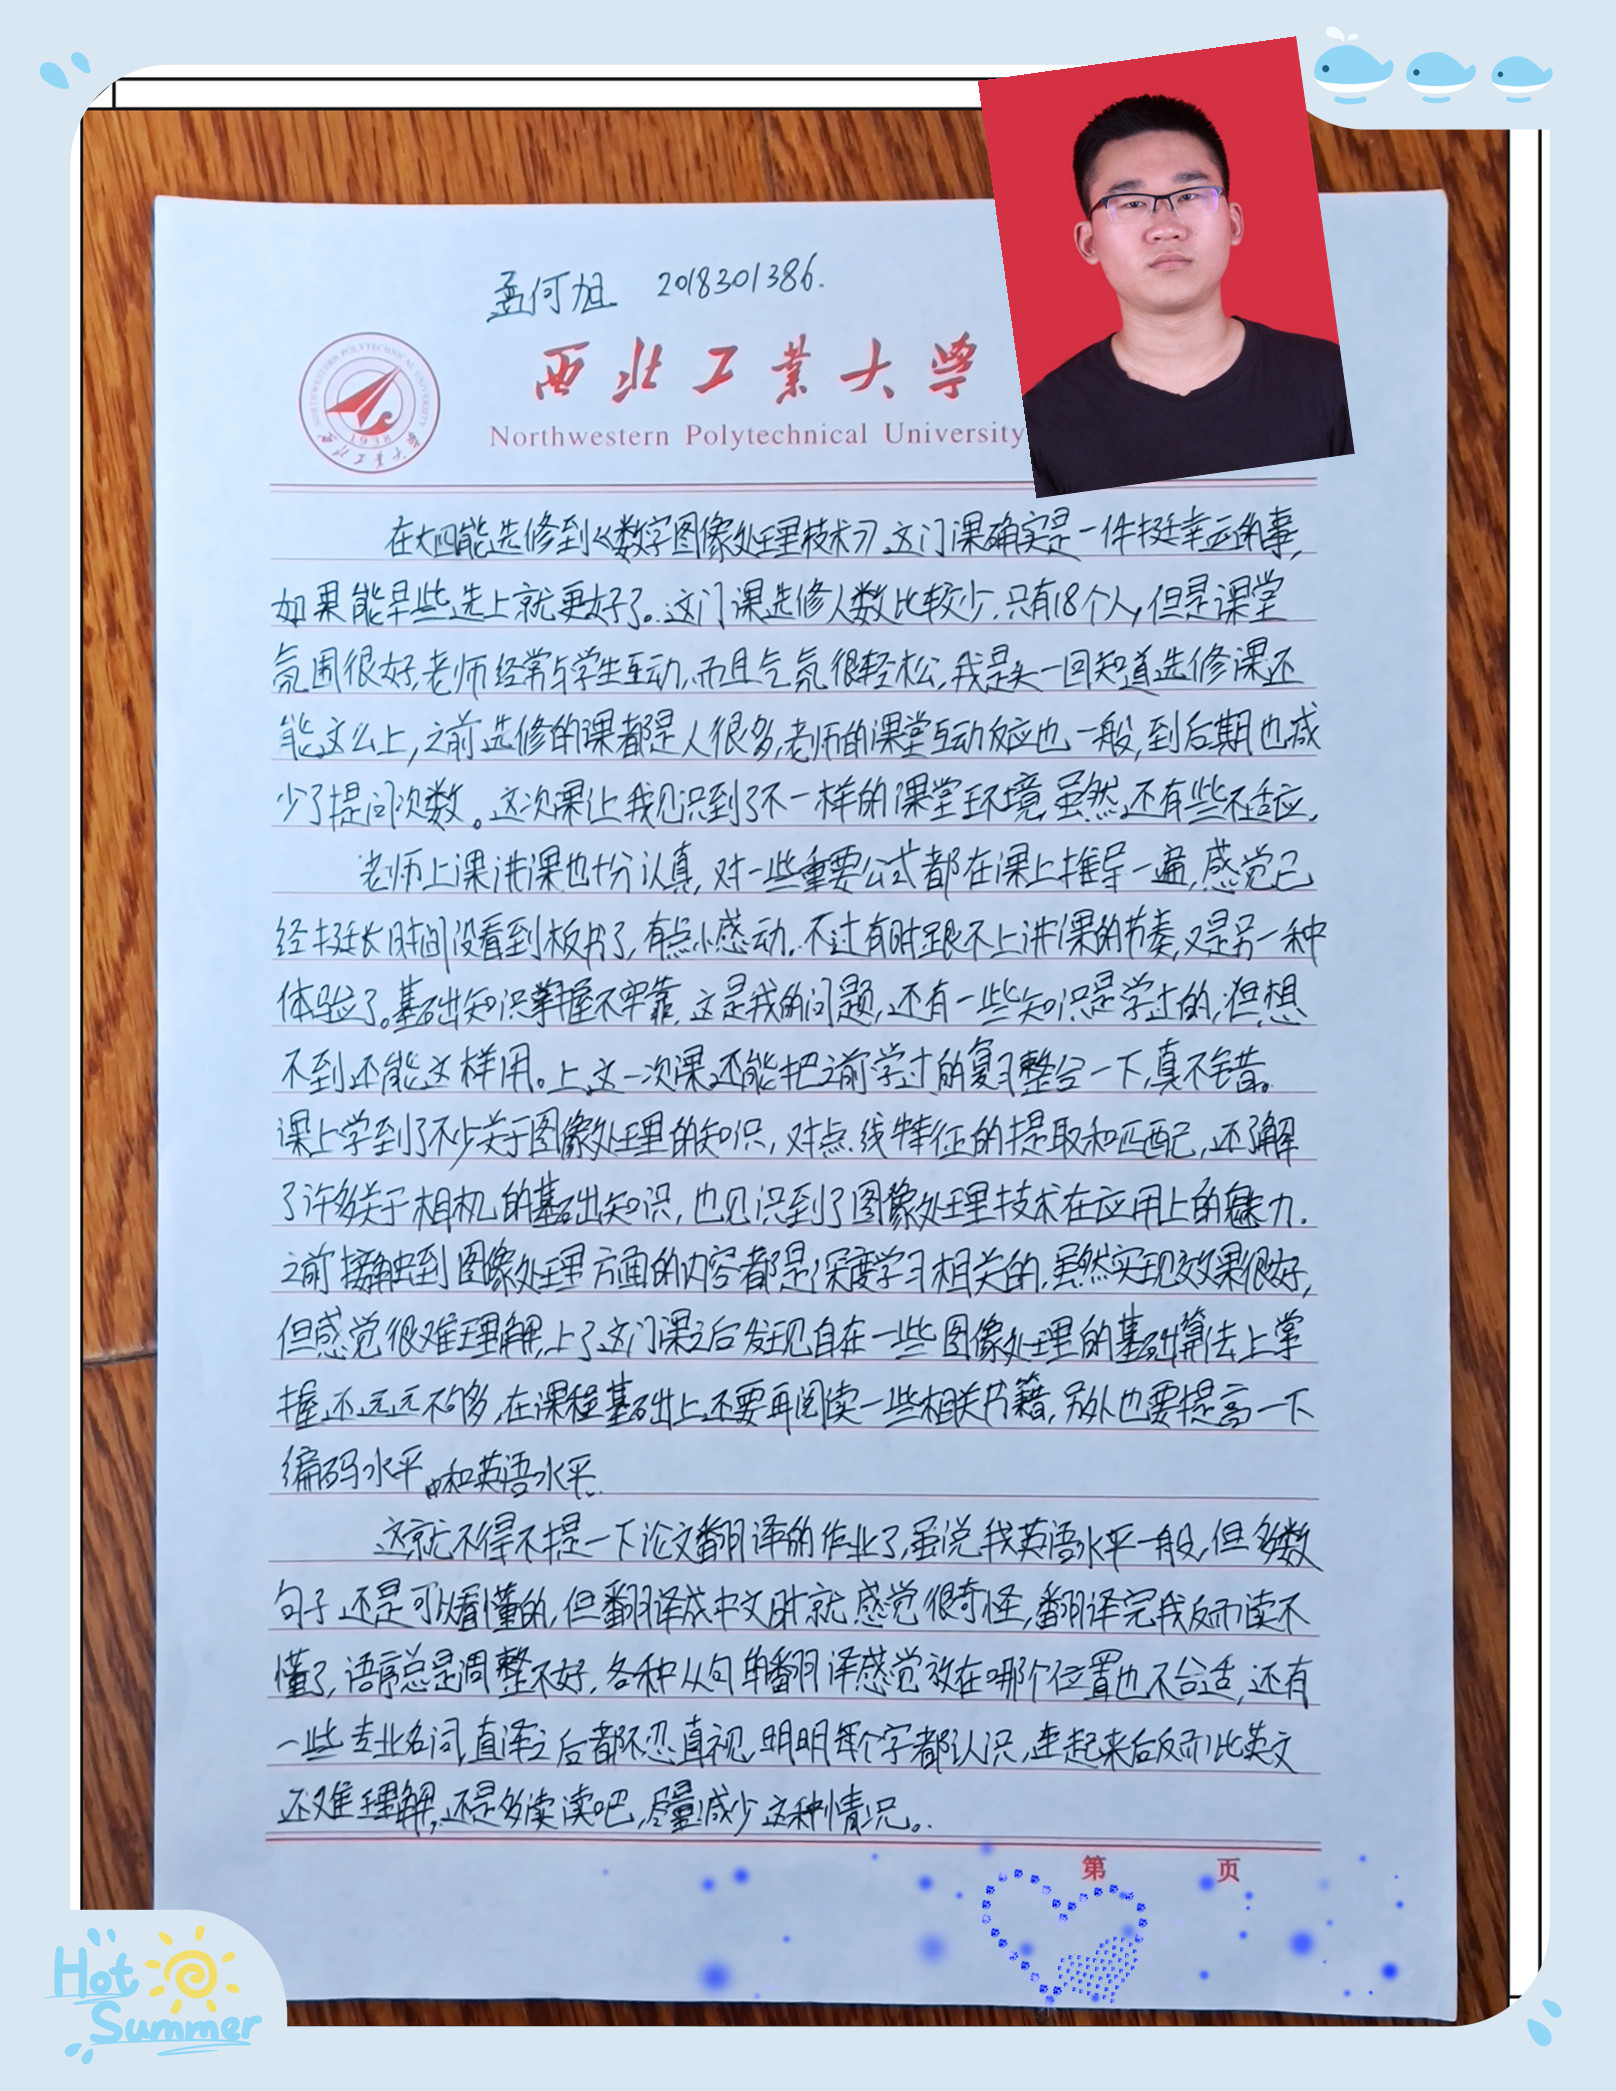 孟何旭 2018301386.
西北工业大学
Northwestern Polytechnical University
NORTHWESTERN POLYTECHNICAL UNIVERSITY
1938
西北工业大学
在大四能选修到《数字图像处理技术》这门课确实是一件挺幸运的事,
如果能早些选上就更好了。这门课选修人数比较少,只有18个人,但是课堂
氛围很好,老师经常与学生互动,而且气氛很轻松,我是头一回知道选修课还
能这么上,之前选修的课都是人很多,老师的课堂互动反应也一般,到后期也减
少了提问次数。这次课让我见识到了不一样的课堂环境,虽然还有些不适应.
老师上课讲课也十分认真,对一些重要公式都在课上推导一遍,感觉已
经挺长时间没看到板书了,有点小感动.不过有时跟不上讲课的节奏,又是另一种
体验了。基础知识掌握不牢靠,这是我的问题,还有一些知识是学过的,但想
不到还能这样用。上这一次课还能把之前学过的复习整合一下,真不错。
课上学到了不少关于图像处理的知识,对点.线特征的提取和匹配,还了解
了许多关于相机的基础知识,也见识到了图像处理技术在应用上的魅力.
之前接触到图像处理方面的内容都是深度学习相关的,虽然实现效果很好,
但感觉很难理解,上了这门课之后发现自在一些图像处理的基础算法上掌
握还远远不够多,在课程基础上还要再阅读一些相关书籍,另外也要提高一下
编码水平和英语水平.
这就不得不提一下论文翻译的作业了,虽说我英语水平一般,但多数
句子还是可以看懂的,但翻译成中文时就感觉很奇怪,翻译完我反而读不
懂了,语序总是调整不好,各种从句单翻译感觉放在哪个位置也不合适,还有
一些专业名词,直译之后都不忍直视,明明每个字都认识,连起来后反而比英文
还难理解,还是多读读吧,尽量减少这种情况。.
第 页
Hot
Summer